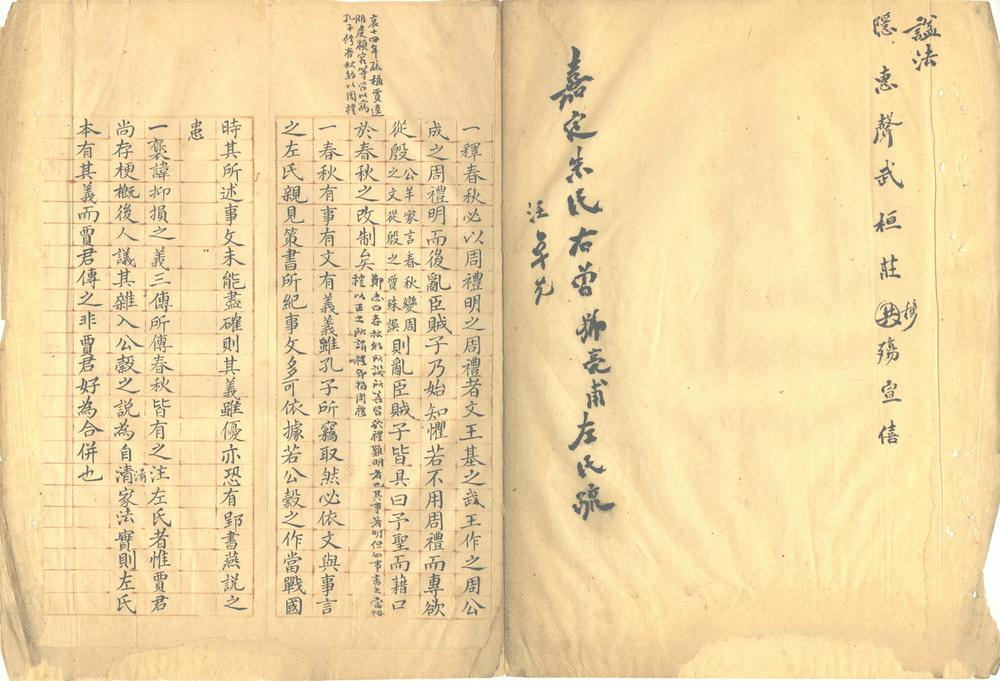 諡法
隱惠聲武桓莊共殤宣僖
穆
嘉定朱氏右曾號亮甫左氏疏
汪
哀十四年疏稱賈逵
服虔潁容等皆以為
孔子修春秋約以周禮
一釋春秋必以周禮明之周禮者文王基之武王作之周公
成之周禮明而後亂臣賊子乃始知懼若不用周禮而專欲
從殷公羊家言春秋變周之文從殷之質殊誤則亂臣賊子皆具曰予聖而藉口
於春秋之改制矣鄭志曰春秋經所譏所善皆於禮難明者也其事著明但如事書之當按禮以正之所謂禮即指周禮
一春秋有事有文有義義雖孔子所竊取然必依文與事言
之左氏親見策書所紀事文多可依據若公穀之作當戰國
時其所述事文未能盡確則其義雖優亦恐有郢書燕說之
患
一褒諱抑損之義三傳所傳春秋皆有之注左氏者惟賈君
尚存梗概後人議其雜入公穀之說為自淆家法實則左氏
本有其義而賈君傳之非賈君好為合併也